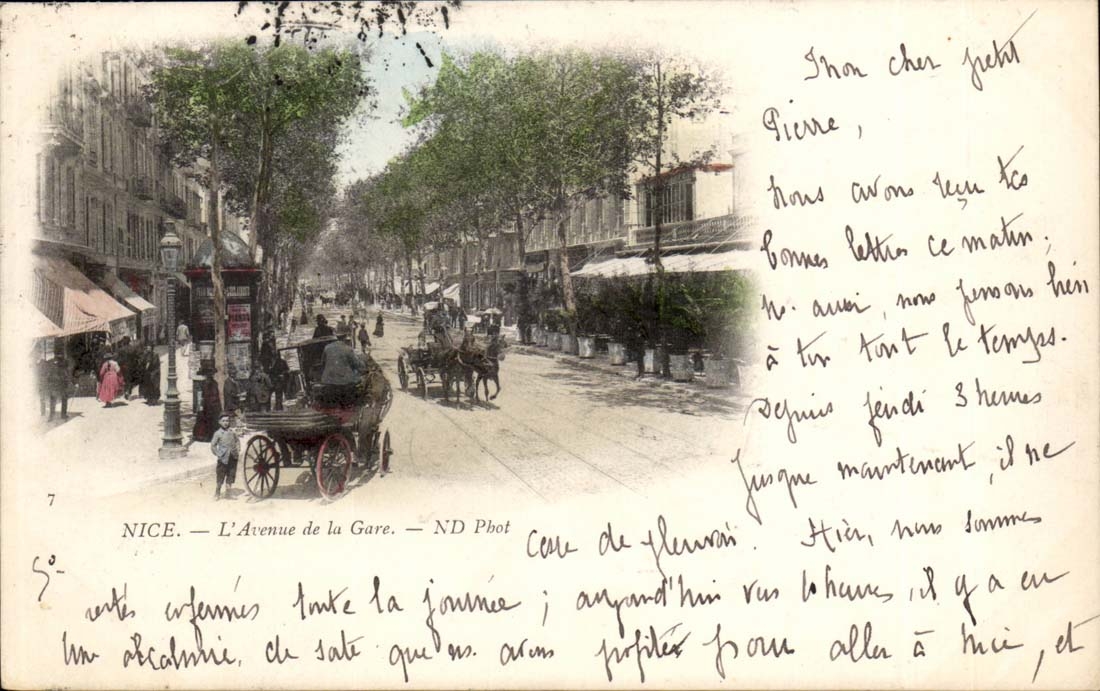 Mon cher petit
Pierre,
Nous avons reçu tes
bonnes lettres ce matin.
N. aussi, nous pensons bien
à toi tout le temps.
Depuis jeudi 3 heures
jusque maintenant, il ne
7
NICE. — L'Avenue de la Gare. — ND Phot
cesse de pleuvoir. Hier, nous sommes
restés enfermés toute la journée ; aujourd'hui vers 10 heures, il y a eu
une accalmie, de sorte que ns. avons profité pour aller à Nice, et